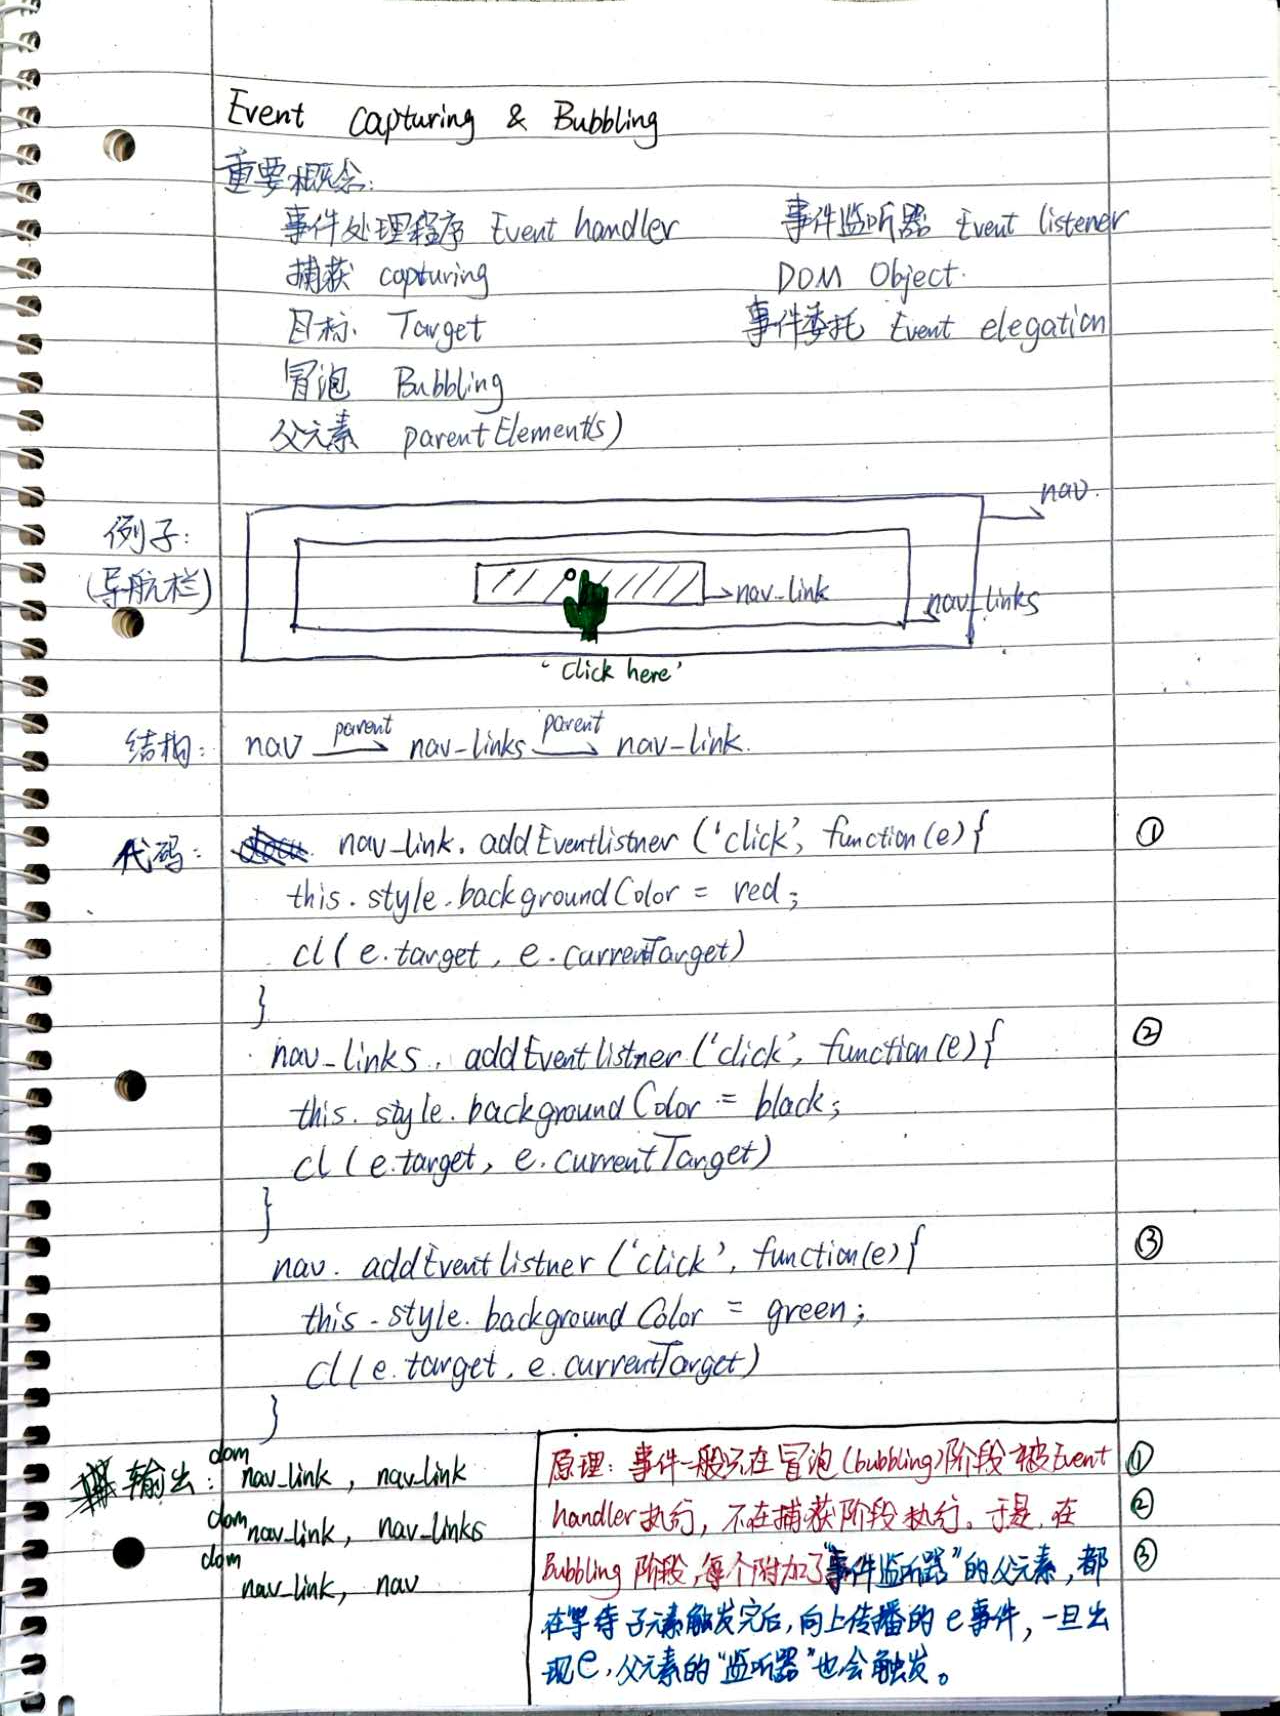 Event capturing & Bubbling
重要概念:
事件处理程序 Event handler 事件监听器 Event listener
捕获 capturing DOM Object.
目标. Target 事件委托 Event elegation
冒泡 Bubbling
父元素 parentElement(s)
nav.
例子:
(导航栏)
nav-link
nav-links
'Click here'
结构: nav parent nav-links parent nav-link.
代码: nav-link. addEventlistner ('click', function(e){ ①
this.style.backgroundColor = red;
cl( e.target, e.currentTarget)
}
nav-links. addEventlistner ('click', function(e){ ②
this.style.backgroundColor = black;
cl (e.target, e.currentTarget)
}
nav. addEventlistner ('click', function(e){ ③
this.style.backgroundColor = green;
cl( e.target, e.currentTarget)
}
输出: dom nav-link, nav-link ①
dom nav-link, nav-links ②
dom nav-link, nav ③
原理: 事件一般只在冒泡(bubbling)阶段被Event
handler执行, 不在捕获阶段执行。于是, 在
Bubbling 阶段, 每个附加了"事件监听器"的父元素, 都
在等待子元素触发完后, 向上传播的e事件, 一旦出
现e, 父元素的"监听器"也会触发。